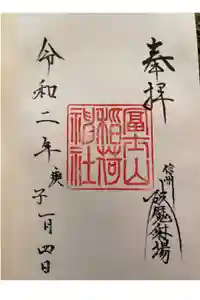 奉拝
信州
冨士山
稲荷
神社
令和二年庚子一月四日